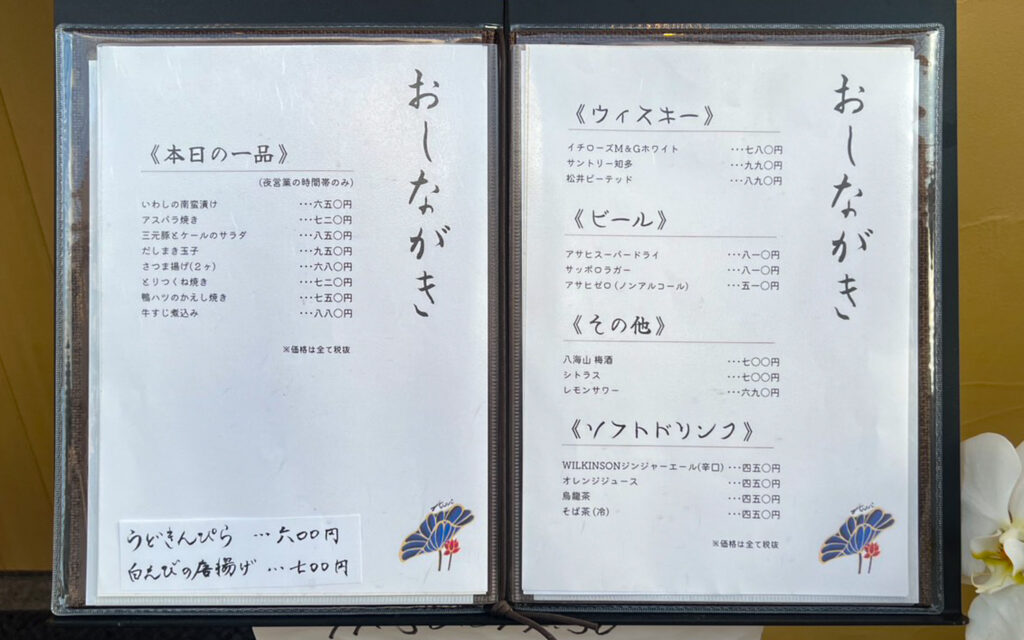 おしながき
《本日の一品》
(夜営業の時間帯のみ)
いわしの南蛮漬け ･･･六五〇円
アスパラ焼き ･･･七二〇円
三元豚とケールのサラダ ･･･八五〇円
だしまき玉子 ･･･九五〇円
さつま揚げ(2ヶ) ･･･六八〇円
とりつくね焼き ･･･七二〇円
鴨ハツのかえし焼き ･･･七五〇円
牛すじ煮込み ･･･八八〇円
※価格は全て税抜
うどきんぴら …六00円
白えびの唐揚げ …七00円
おしながき
《ウィスキー》
イチローズM&Gホワイト ･･･七八〇円
サントリー知多 ･･･九九〇円
松井ピーテッド ･･･八九〇円
《ビール》
アサヒスーパードライ ･･･八一〇円
サッポロラガー ･･･八一〇円
アサヒゼロ(ノンアルコール) ･･･五一〇円
《その他》
八海山 梅酒 ･･･七〇〇円
シトラス ･･･七〇〇円
レモンサワー ･･･六九〇円
《ソフトドリンク》
WILKINSONジンジャーエール(辛口) ･･･四五〇円
オレンジジュース ･･･四五〇円
烏龍茶 ･･･四五〇円
そば茶(冷) ･･･四五〇円
※価格は全て税抜